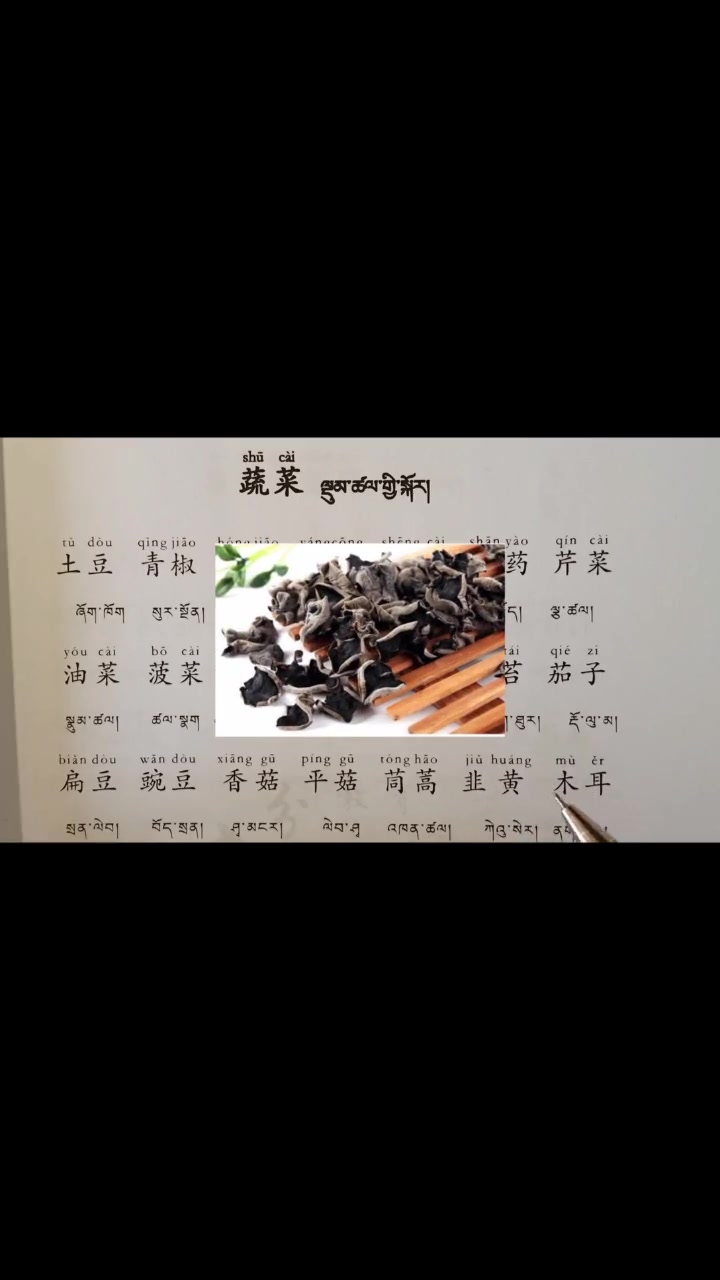 shū cài
蔬菜 ལྡུམ་ཚལ་གྱི་སྐོར།
tǔ dòu qīng jiāo hóng jiāo yáng cōng shēng cài shān yào qín cài
土豆 青椒 药 芹菜
ཞོག་ཁོག སུར་སྔོན། ལྕ་ཚལ།
yóu cài bō cài tái qié zi
油菜 菠菜 苔 茄子
སྣུམ་ཚལ། ཚལ་སྣག ཐུར། རྡོ་ལུ་མ།
biǎn dòu wān dòu xiāng gū píng gū tóng hāo jiǔ huáng mù ěr
扁豆 豌豆 香菇 平菇 茼蒿 韭黄 木耳
སྲན་ལེབ། བོད་སྲན། ཤྭ་མངར། ལེབ་ཤྭ འཁན་ཚལ། ཀེའུ་སེར།